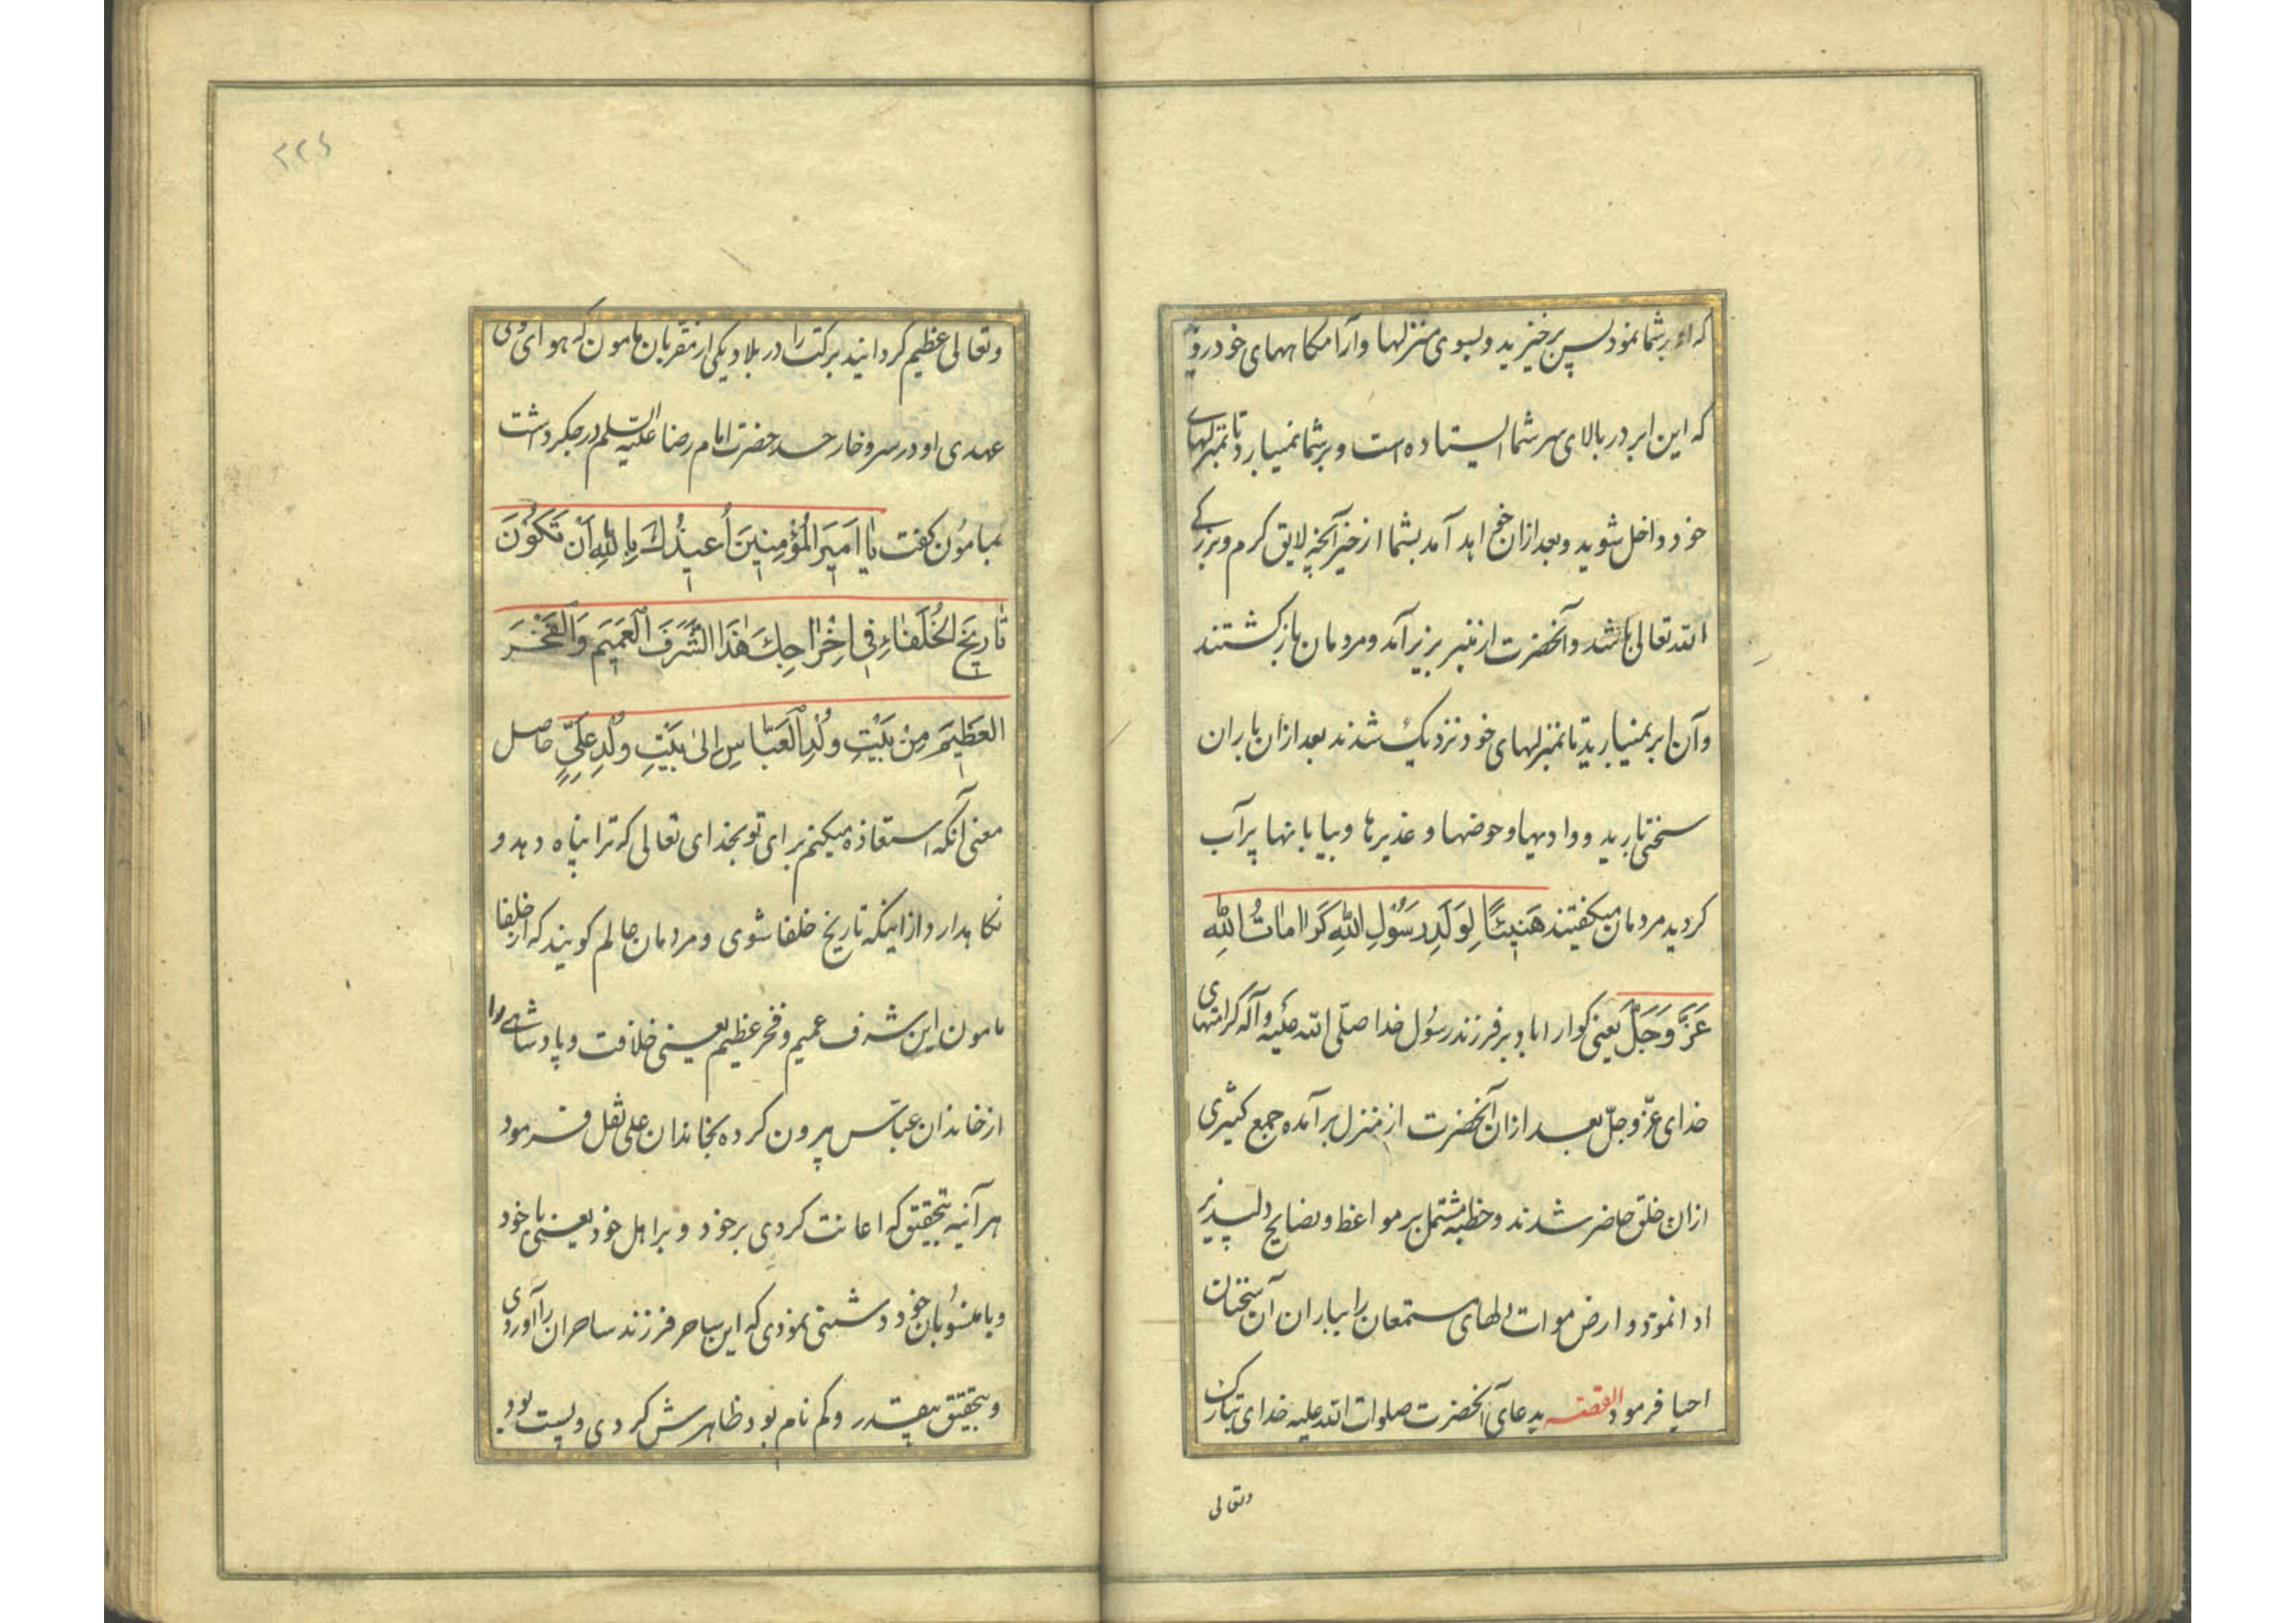 که او بر شما نمود پس برخیزید و بسوی منزلها و آرامکاههای خود روید
که این ابر در بالای سر شما ایستاده است و بر شما نمیبارد تا بمنزلهای
خود داخل شوید و بعد ازان خواهد آمد بشما از خیر آنچه لایق کرم و بزرکی
الله تعالی باشد و آنحضرت از منبر بزیر آمد و مردمان بازکشتند
و آن ابر نمیبارید تا بمنزلهای خود نزدیک شدند بعد ازان باران
سختی بارید و وادیها و حوضها و غدیرها و بیابانها پرآب
کردید مردمان میکفتند هَنِیئًا لِوَلَدِ رَسُوْلِ اللهِ کَرَامَاتُ اللهِ
عَزَّ وَجَلَّ یعنی کوارا باد بر فرزند رسول خدا صلّی الله علیه و آله کرامتهای
خدای عزّ وجلّ بعد ازان آنحضرت از منزل برآمده جمع کثیری
ازان خلق حاضر شدند و خطبه مشتمل بر مواعظ و نصایح دلپذیر
ادا نمود و ارض موات دلهای مستمعان را بباران آن سخنان
احیا فرمود القصه بدعای آنحضرت صلوات الله علیه خدای تبارک
وتعالی
۲۲۶
وتعالی عظیم کردانید برکت را در بلاد و یکی از مقربان مامون که هوای ولی
عهدی او در سر و خار حسد حضرت امام رضا علیه السلم در جکر داشت
بمامون کفت یَا اَمِیرَ الْمُؤْمِنِینَ اُعِیذُكَ بِاللهِ اَنْ تَکُوْنَ
تَارِیخَ الْخُلَفَاءِ فِی اِخْرَاجِكَ هٰذَا الشَّرَفَ الْعَمِیمَ وَالْفَخْرَ
الْعَظِیمَ مِنْ بَیْتِ وُلْدِ الْعَبَّاسِ اِلیٰ بَیْتِ وُلْدِ عَلِیٍّ حاصل
معنی آنکه استعاذه میکنم برای تو بخدای تعالی که ترا پناه دهد و
نکاهدارد از اینکه تاریخ خلفا شوی و مردمان عالم کویند که از خلفا
مامون این شرف عمیم و فخر عظیم یعنی خلافت و پادشاهی را
از خاندان عباس بیرون کرده بخاندان علی نقل فرمود
هر آینه بتحقیق که اعانت کردی بر خود و بر اهل خود یعنی با خود
و با منسوبان خود دشمنی نمودی که این ساحر فرزند ساحران را آوردی
و بتحقیق بیقدر و کم نام بود ظاهرش کردی و پست بود